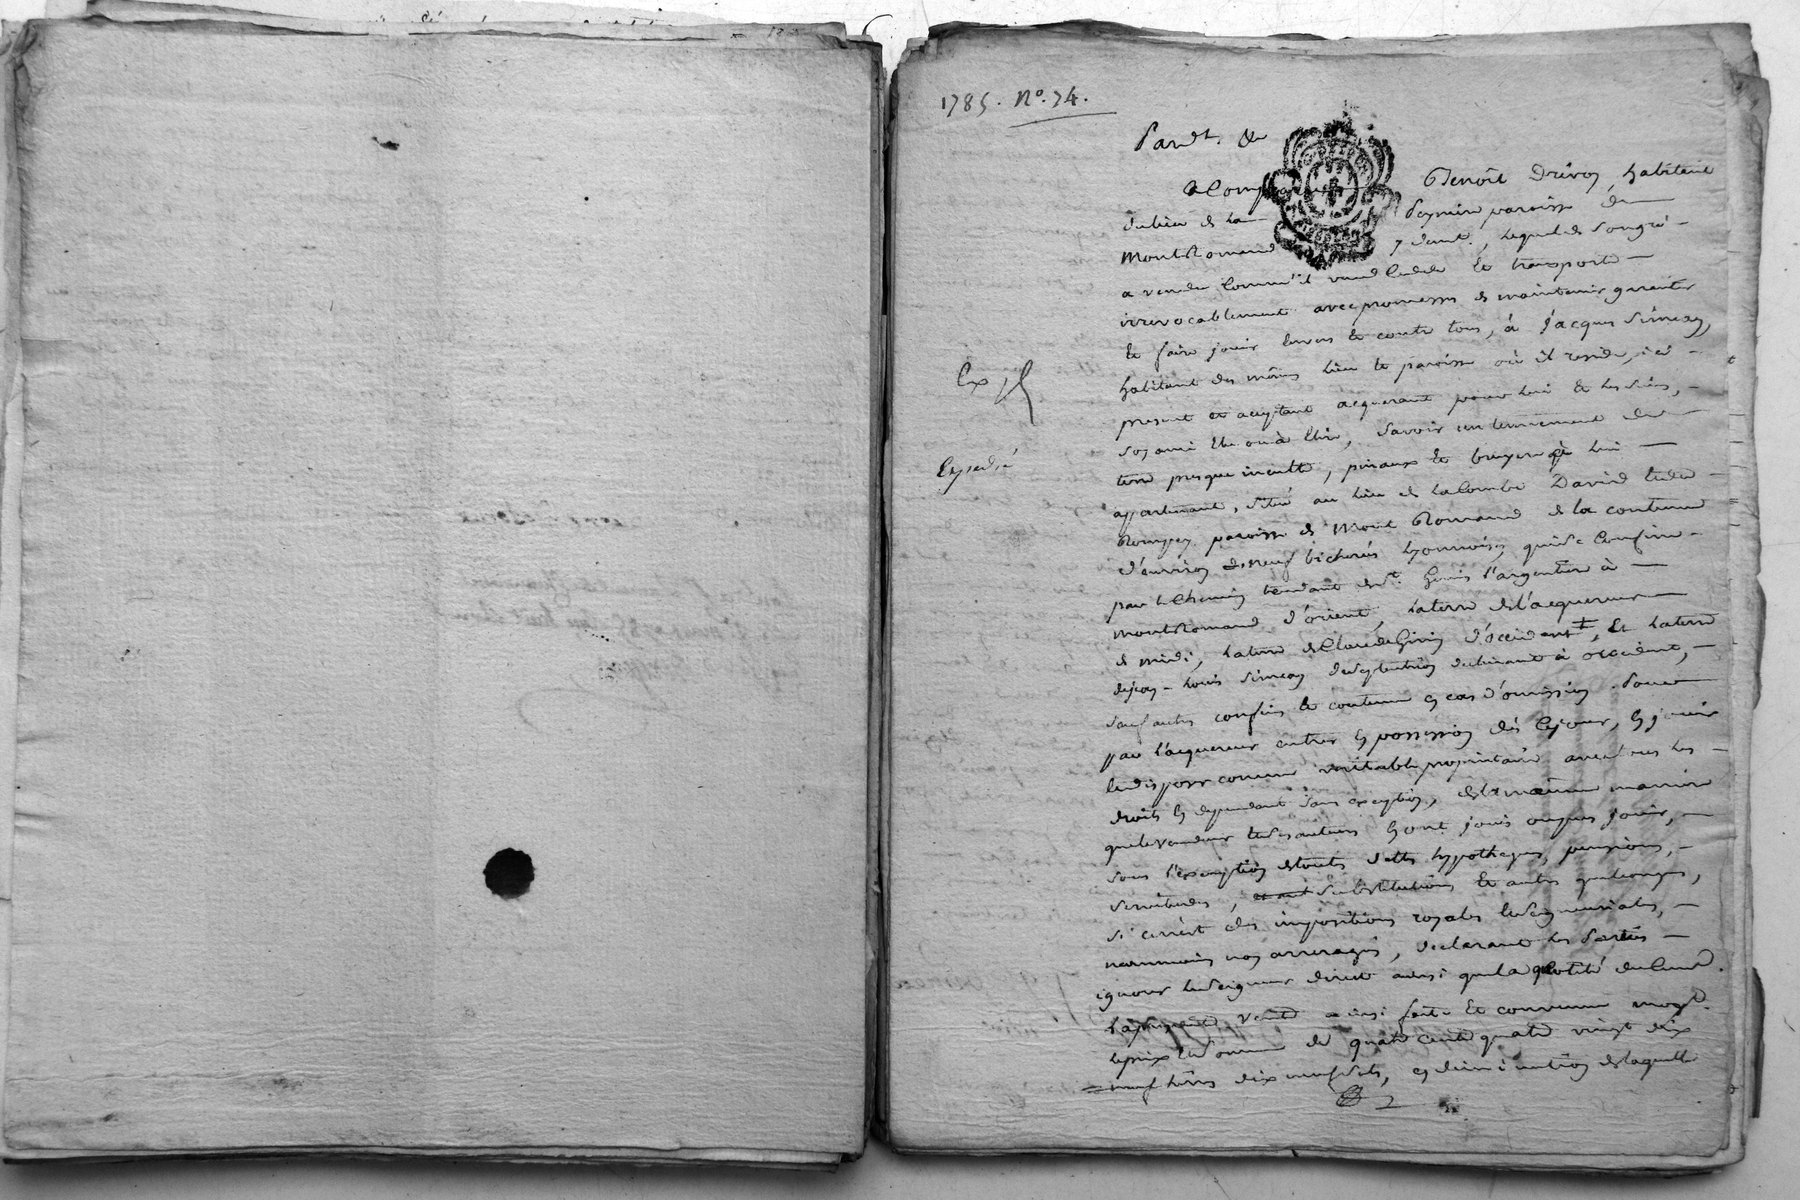 1785. No. 74.
Pardt. &c
a Comparu Benoît Drivon, habitant
du lieu de la paroisse de
Montromand y devt., lequel de son gré
a vendu comme il vend cede et transporte
irrevocablement avec promesses de maintenir garentir
et faire jouir envers et contre tous, à Jacques Simeon,
habitant des mêmes lieu et paroisse où il reside, ici
present et acceptant acquerant pour lui et les siens,
son ami elu ou à elire, savoir un tennement de
terre presque inculte, pinaux et bruyere à lui
appartenant, situé au lieu de la Combe David
paroisse de Mont Romand de la contenue
d'environ de neuf bicherés lyonnoises, qui se confine
par le chemin tendant de St. Genis l'argentiere à
Montromand d'orient, la terre de l'acquereur
de midi, la terre de Claude Giri d'occident ‡, et la terre
de Jean-Louis Simeon de septentrion declinant à occident,
sauf autres confins et contenue en cas d'omission. Pour
par l'acquereur entrer en possession dès ce jour, en jouir
et disposer comme veritable proprietaire avec tous les
droits en dependant sans exception, de la même maniere
que le vendeur et ses auteurs en ont joui ou pu jouir,
sous l'exemption de toutes dettes hypotheques, pensions,
servitudes, substitutions et autres quelconques,
si ce n'est des impositions royales et seigneuriales,
neanmoins non arreragés, declarant les parties
ignorer le seigneur direct ainsi que la quotité du cens.
La presente vente ainsi faite et convenue moyt.
le prix et somme de quatre cent quatre vingt dix
neuf livres dix neuf sols, en diminution de laquelle
Exp
Expedié
2